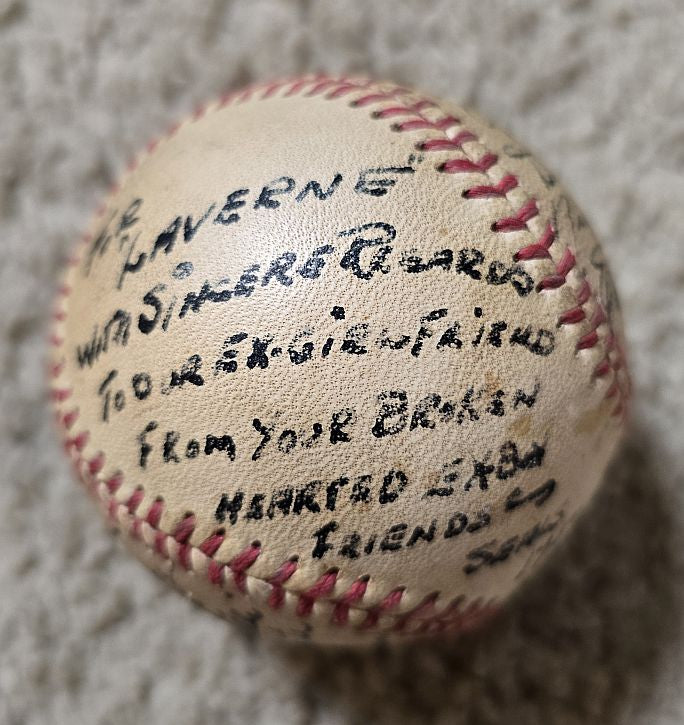 "LAVERNE"
WITH SINCERE REGARDS
TO OUR EX-GIRLFRIEND
FROM YOUR BROKEN
HEARTED EX BOY
FRIENDS